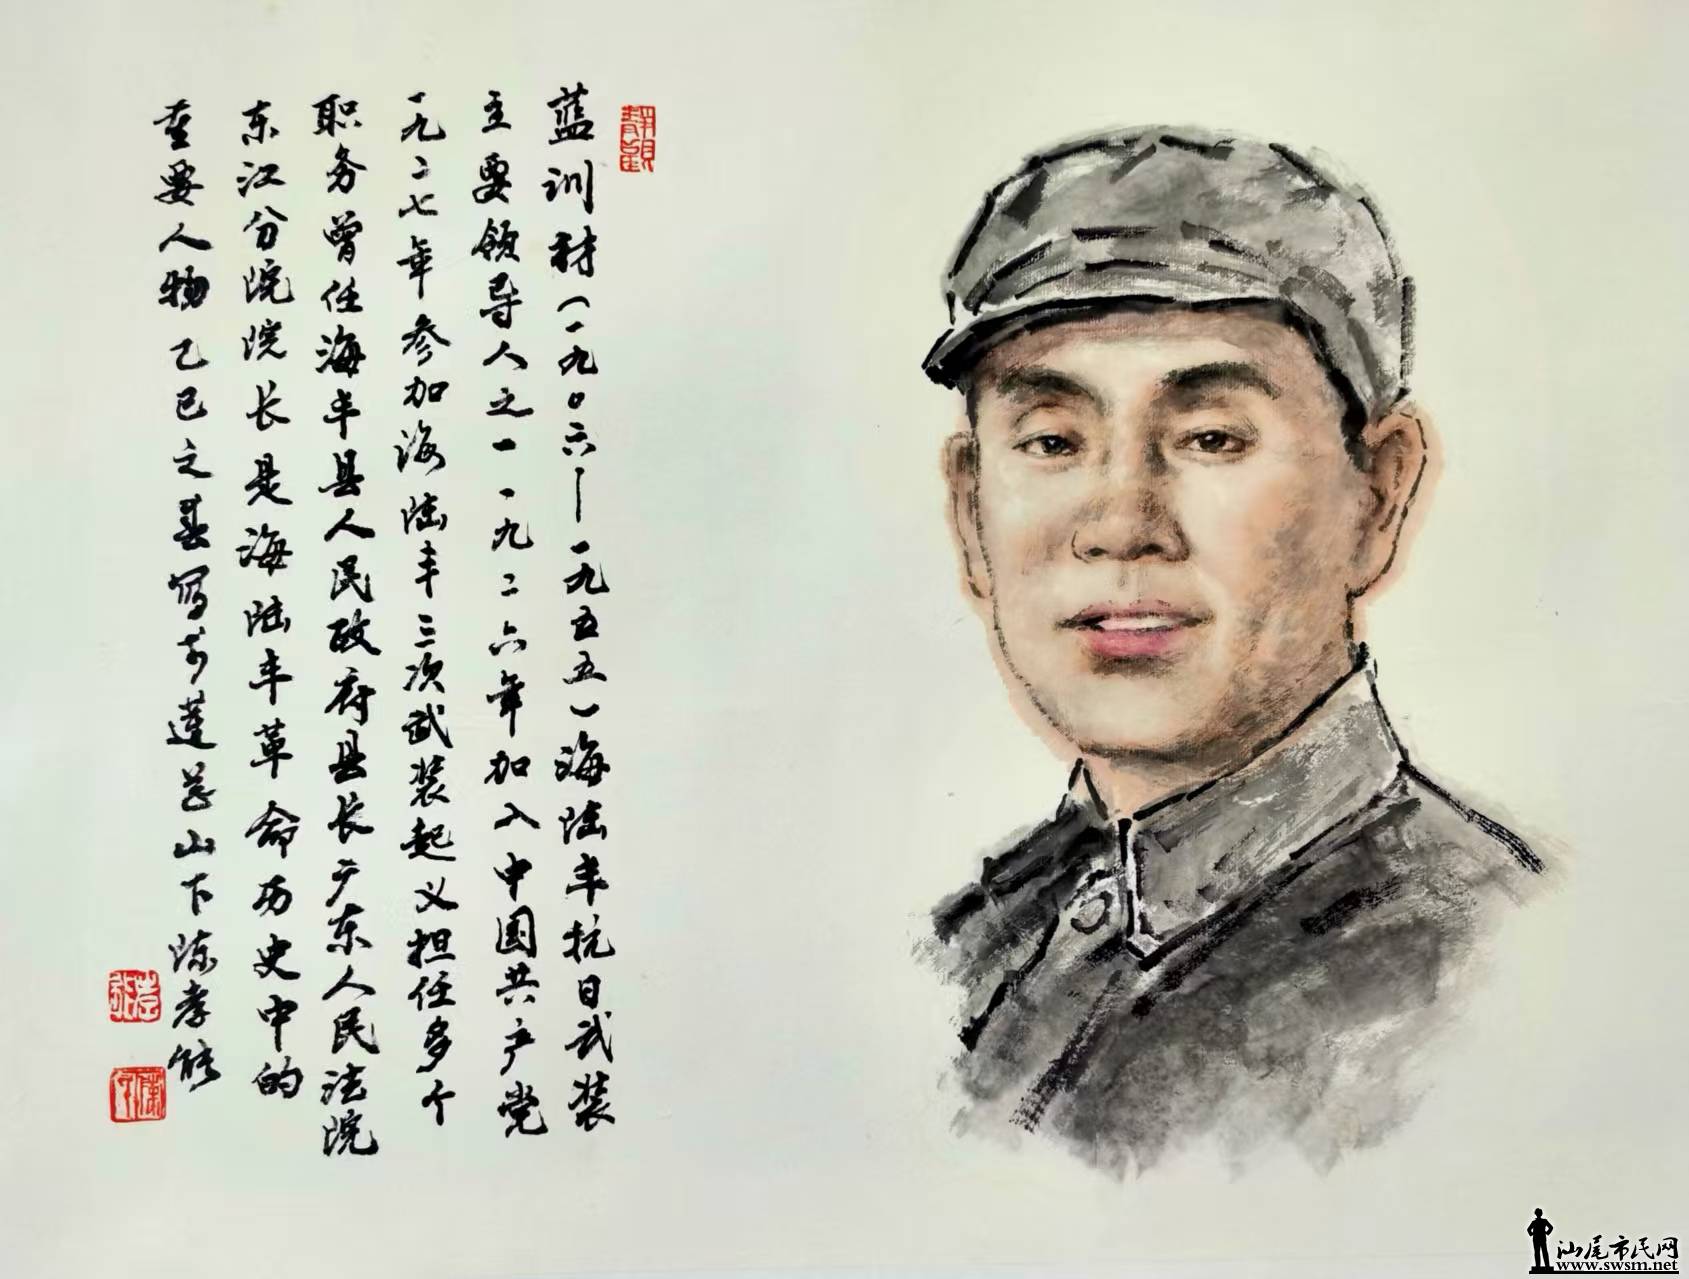 蓝训材(一九〇六—一九五五)海陆丰抗日武装
主要领导人之一一九二六年加入中国共产党
一九二七年参加海陆丰三次武装起义担任多个
职务曾任海丰县人民政府县长广东人民法院
东江分院院长是海陆丰革命历史中的
重要人物乙巳之春写于莲花山下陈孝能
静观
汕尾市民网
www.swsm.net